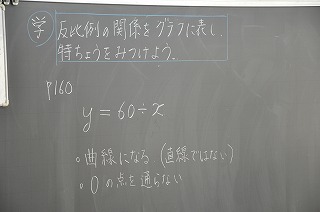 学
反比例の関係をグラフに表し、
特ちょうをみつけよう。
P160
y=60÷x
・曲線になる（直線ではない）
・0の点を通らない